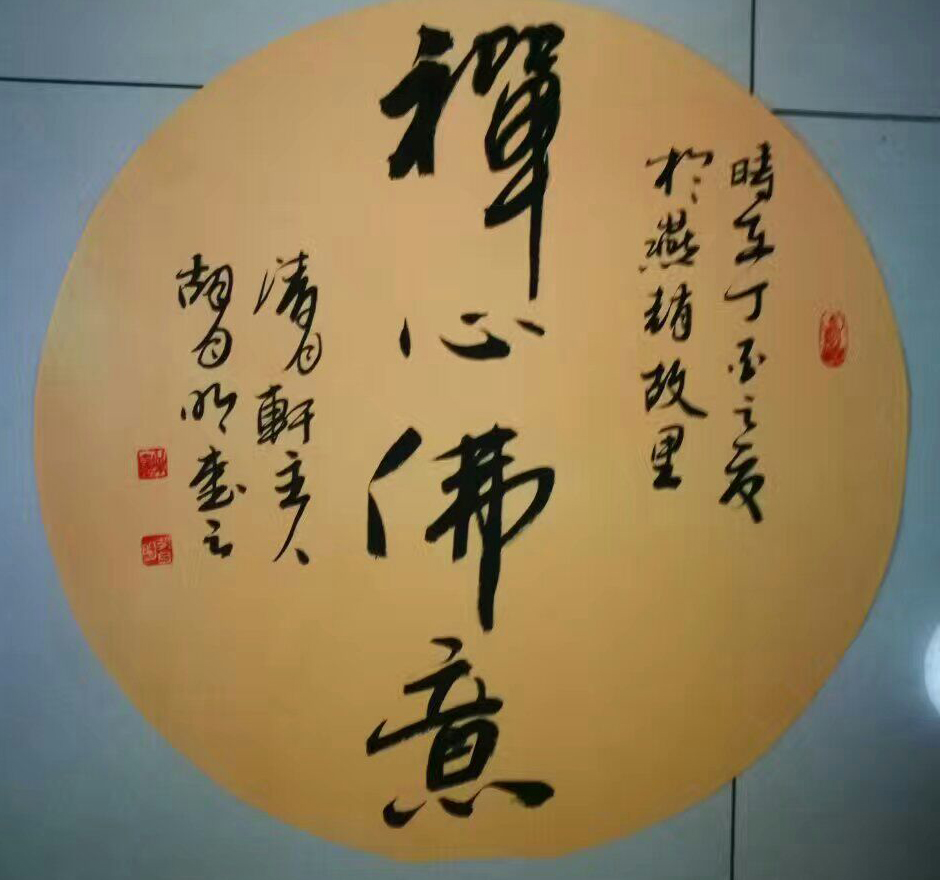 時在丁酉之夏
於燕趙故里
禪心佛意
清月軒主人
胡明書之